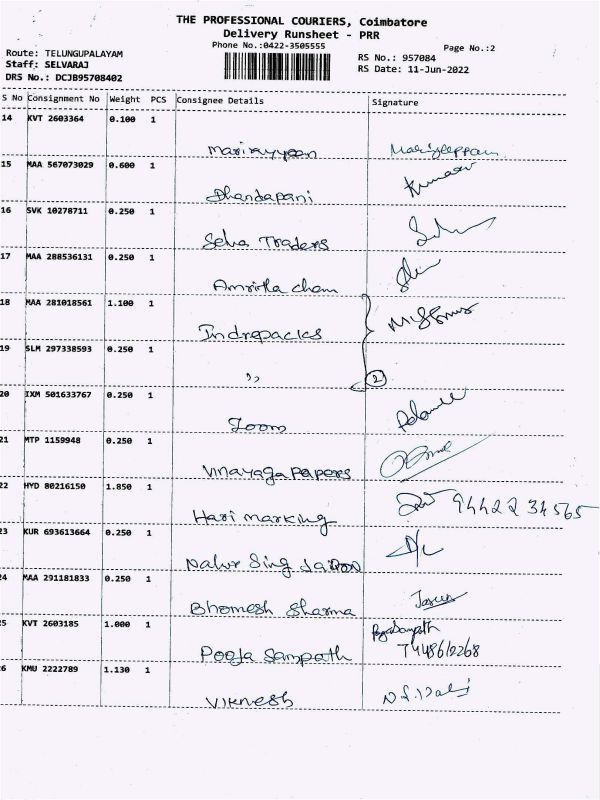 THE PROFESSIONAL COURIERS, Coimbatore
Delivery Runsheet - PRR
Phone No.:0422-3505555
Page No.:2
Route: TELUNGUPALAYAM
Staff: SELVARAJ
DRS No.: DCJB95708402
RS No.: 957084
RS Date: 11-Jun-2022
S No Consignment No Weight PCS Consignee Details Signature
14 KVT 2603364 0.100 1
15 MAA 567073029 0.600 1
Dhandapani Kumar
16 SVK 10278711 0.250 1
Selva Traders
17 MAA 288536131 0.250 1
Amritha cham
18 MAA 281018561 1.100 1
Indrapacks
19 SLM 297338593 0.250 1
,, 2
20 IXM 501633767 0.250 1
Zoom
21 MTP 1159948 0.250 1
Vinayaga papers
22 HYD 80216150 1.850 1
Hari marking 94422 34565
23 KUR 693613664 0.250 1
Sing
24 MAA 291181833 0.250 1
Bhomesh Sharma
25 KVT 2603185 1.000 1
Pooja Sampath PoojaSampath
26 KMU 2222789 1.130 1
Viknesh